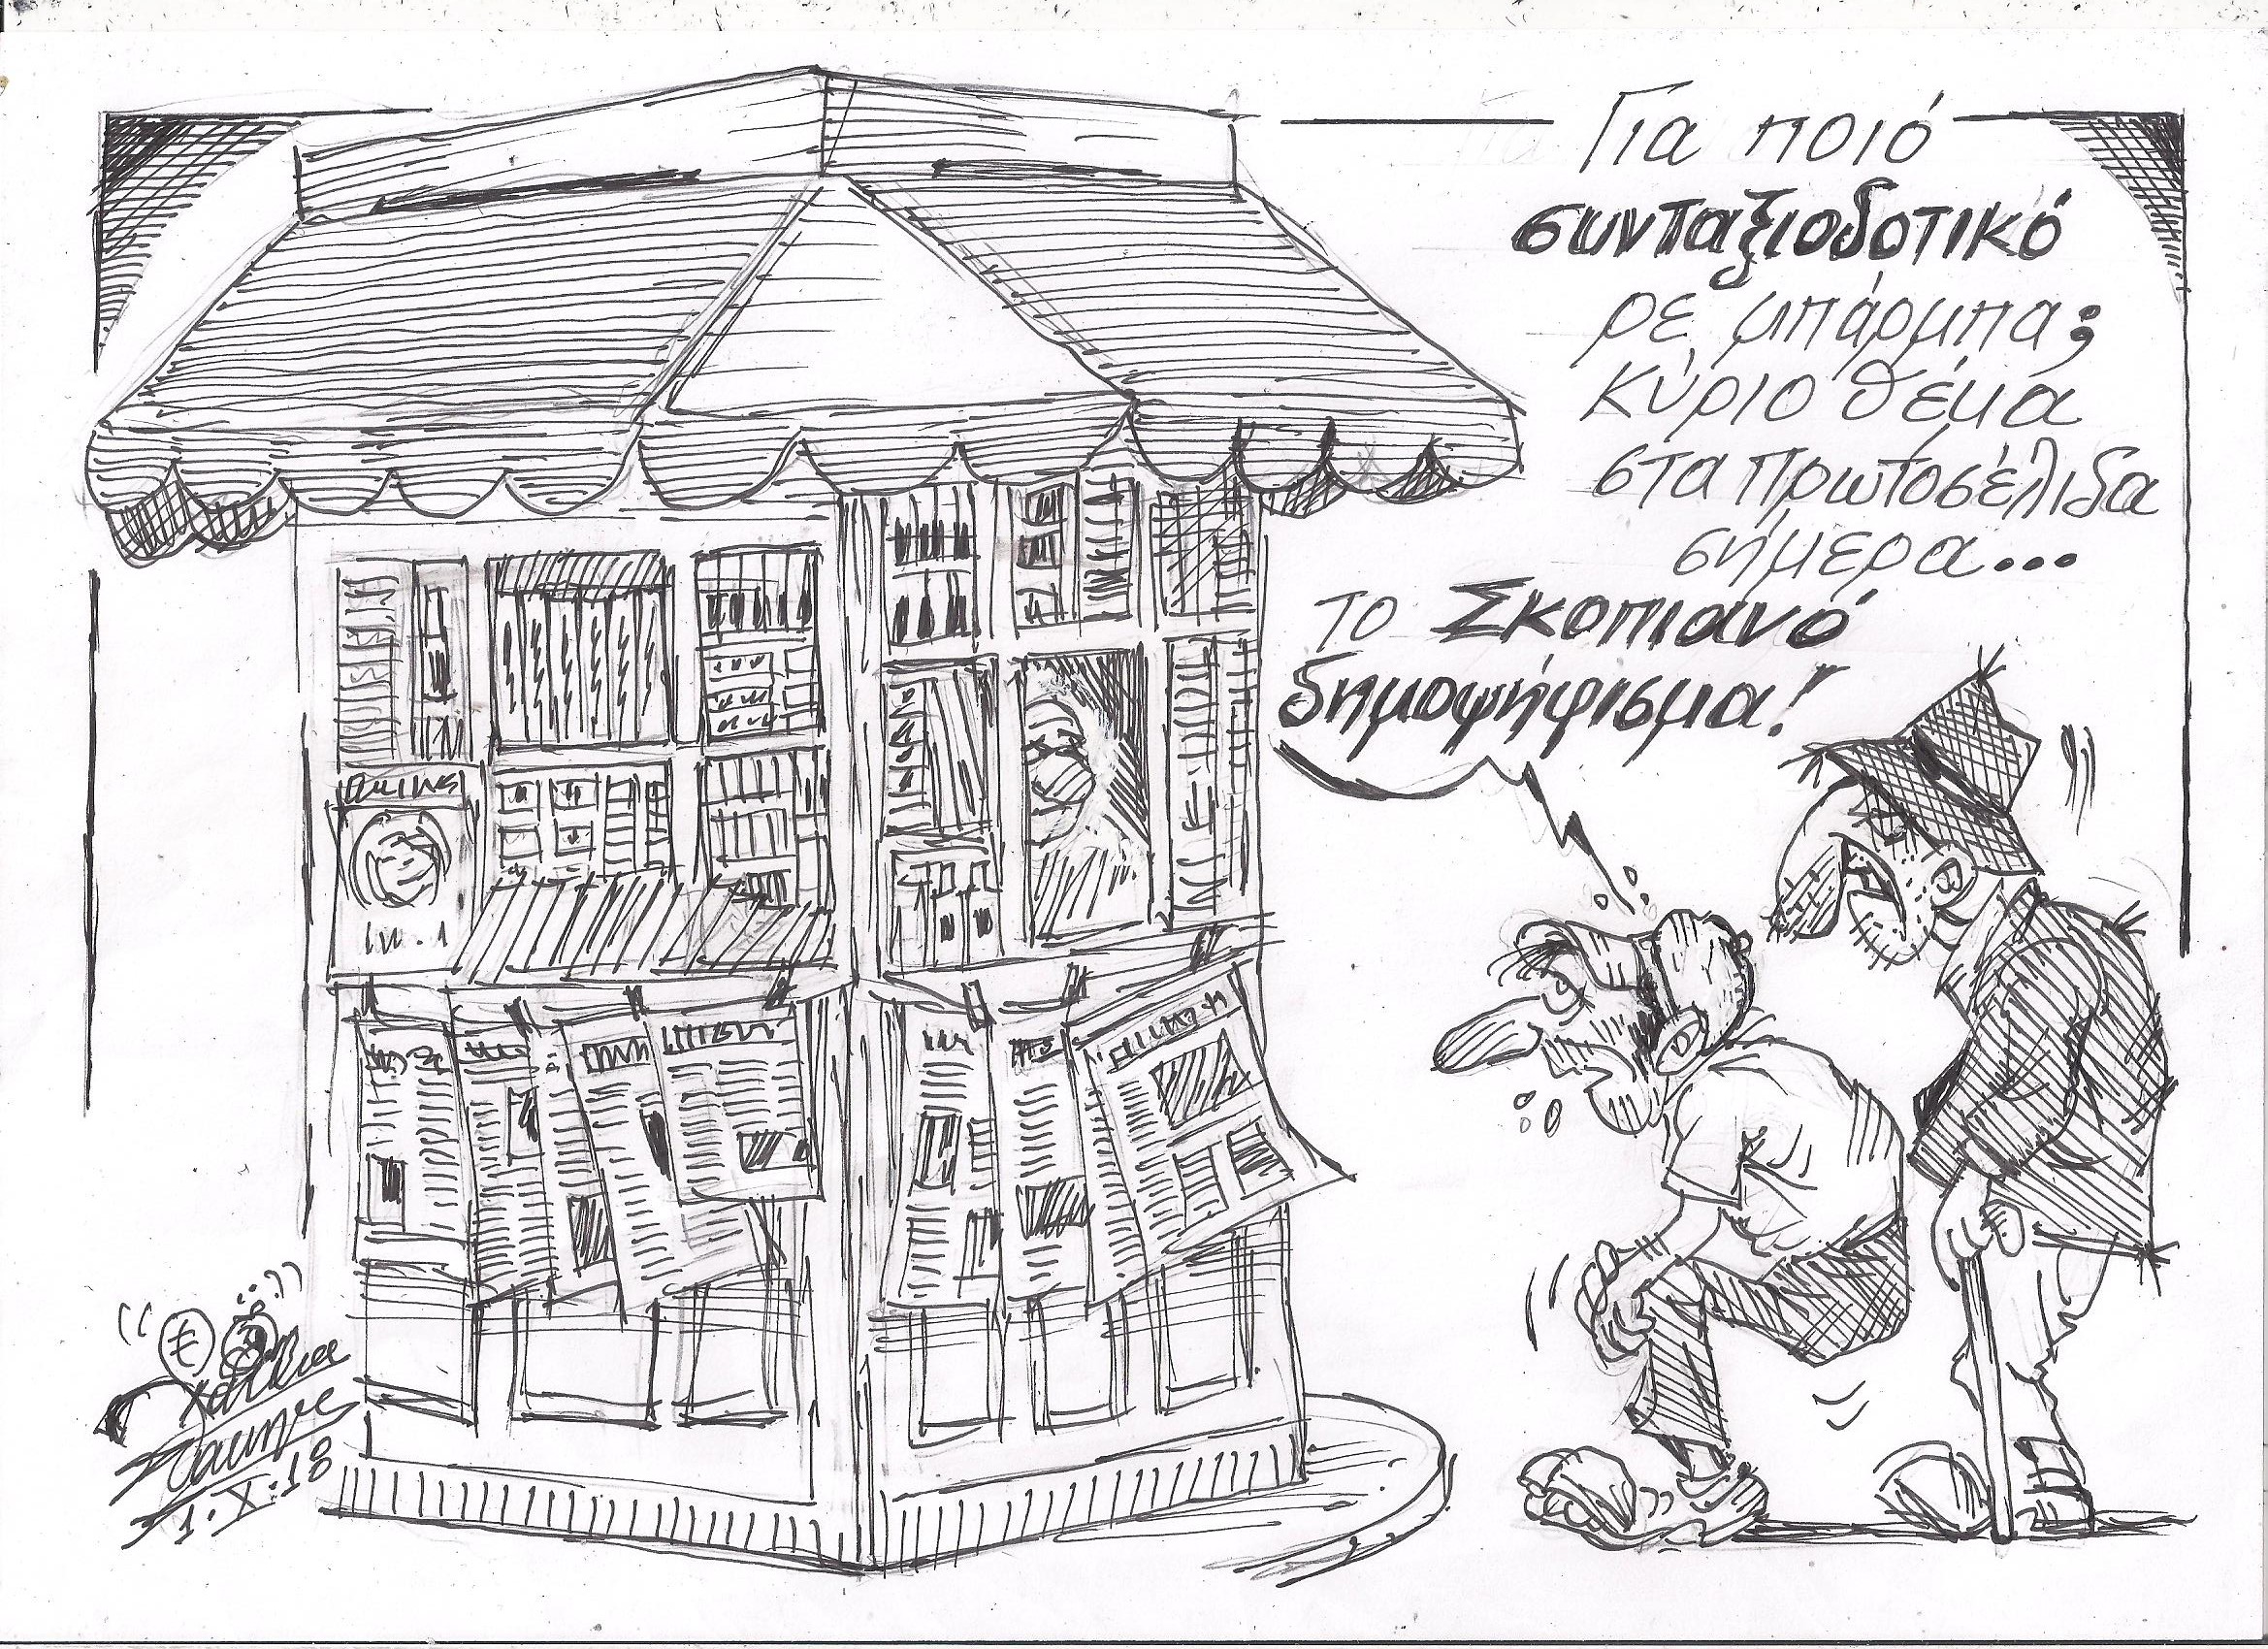 Για ποιό
συνταξιοδοτικό
ρε μπάρμπα;
Κύριο θέμα
στα πρωτοσέλιδα
σήμερα...
το Σκοπιανό
δημοψήφισμα!
1.X.18